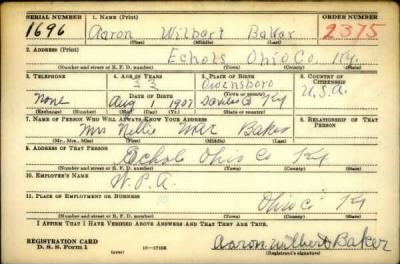 SERIAL NUMBER 1. NAME (Print) ORDER NUMBER
1696 Aaron Wilbert Baker 2375
(First) (Middle) (Last)
2. ADDRESS (Print)
Echols Ohio Co. Ky.
(Number and street or R. F. D. number) (Town) (County) (State)
3. TELEPHONE 4. AGE IN YEARS 5. PLACE OF BIRTH 6. COUNTRY OF CITIZENSHIP
33 Owensboro
DATE OF BIRTH (Town or county)
None Aug 1 1907 Daviess Co Ky U.S.A.
(Exchange) (Number) (Mo.) (Day) (Yr.) (State or country)
7. NAME OF PERSON WHO WILL ALWAYS KNOW YOUR ADDRESS 8. RELATIONSHIP OF THAT PERSON
Mrs Nellie Mae Baker
(Mr., Mrs., Miss) (First) (Middle) (Last)
9. ADDRESS OF THAT PERSON
Echols Ohio Co Ky
(Number and street or R. F. D. number) (Town) (County) (State)
10. EMPLOYER'S NAME
W.P.A.
11. PLACE OF EMPLOYMENT OR BUSINESS
Ohio Co Ky
(Number and street or R. F. D. number) (Town) (County) (State)
I AFFIRM THAT I HAVE VERIFIED ABOVE ANSWERS AND THAT THEY ARE TRUE.
REGISTRATION CARD
D. S. S. Form 1 (over) 16—17105 Aaron Wilbert Baker
(Registrant's signature)